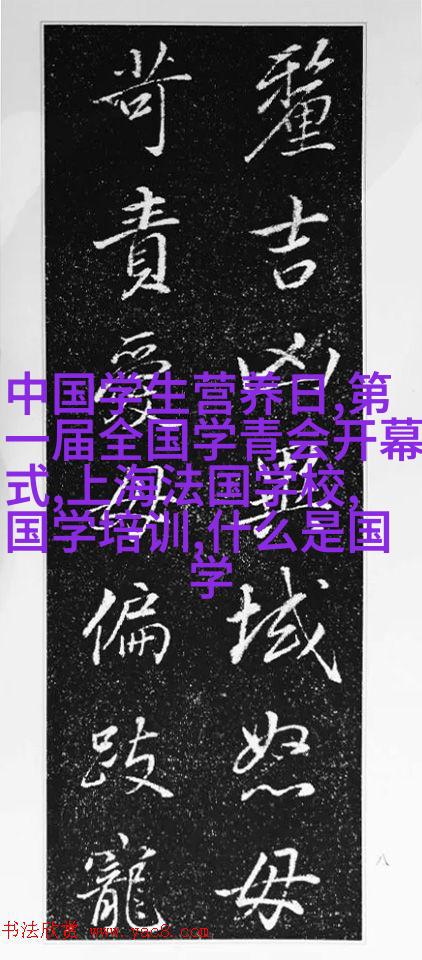 釐吉凶異域怒毋
苛責愛毋偏跂寵
中国学生营养日,第
一届全国学青会开幕
式,上海法国学校,
国学培训,什么是国
学
八
书法欣赏 www.yac8.com